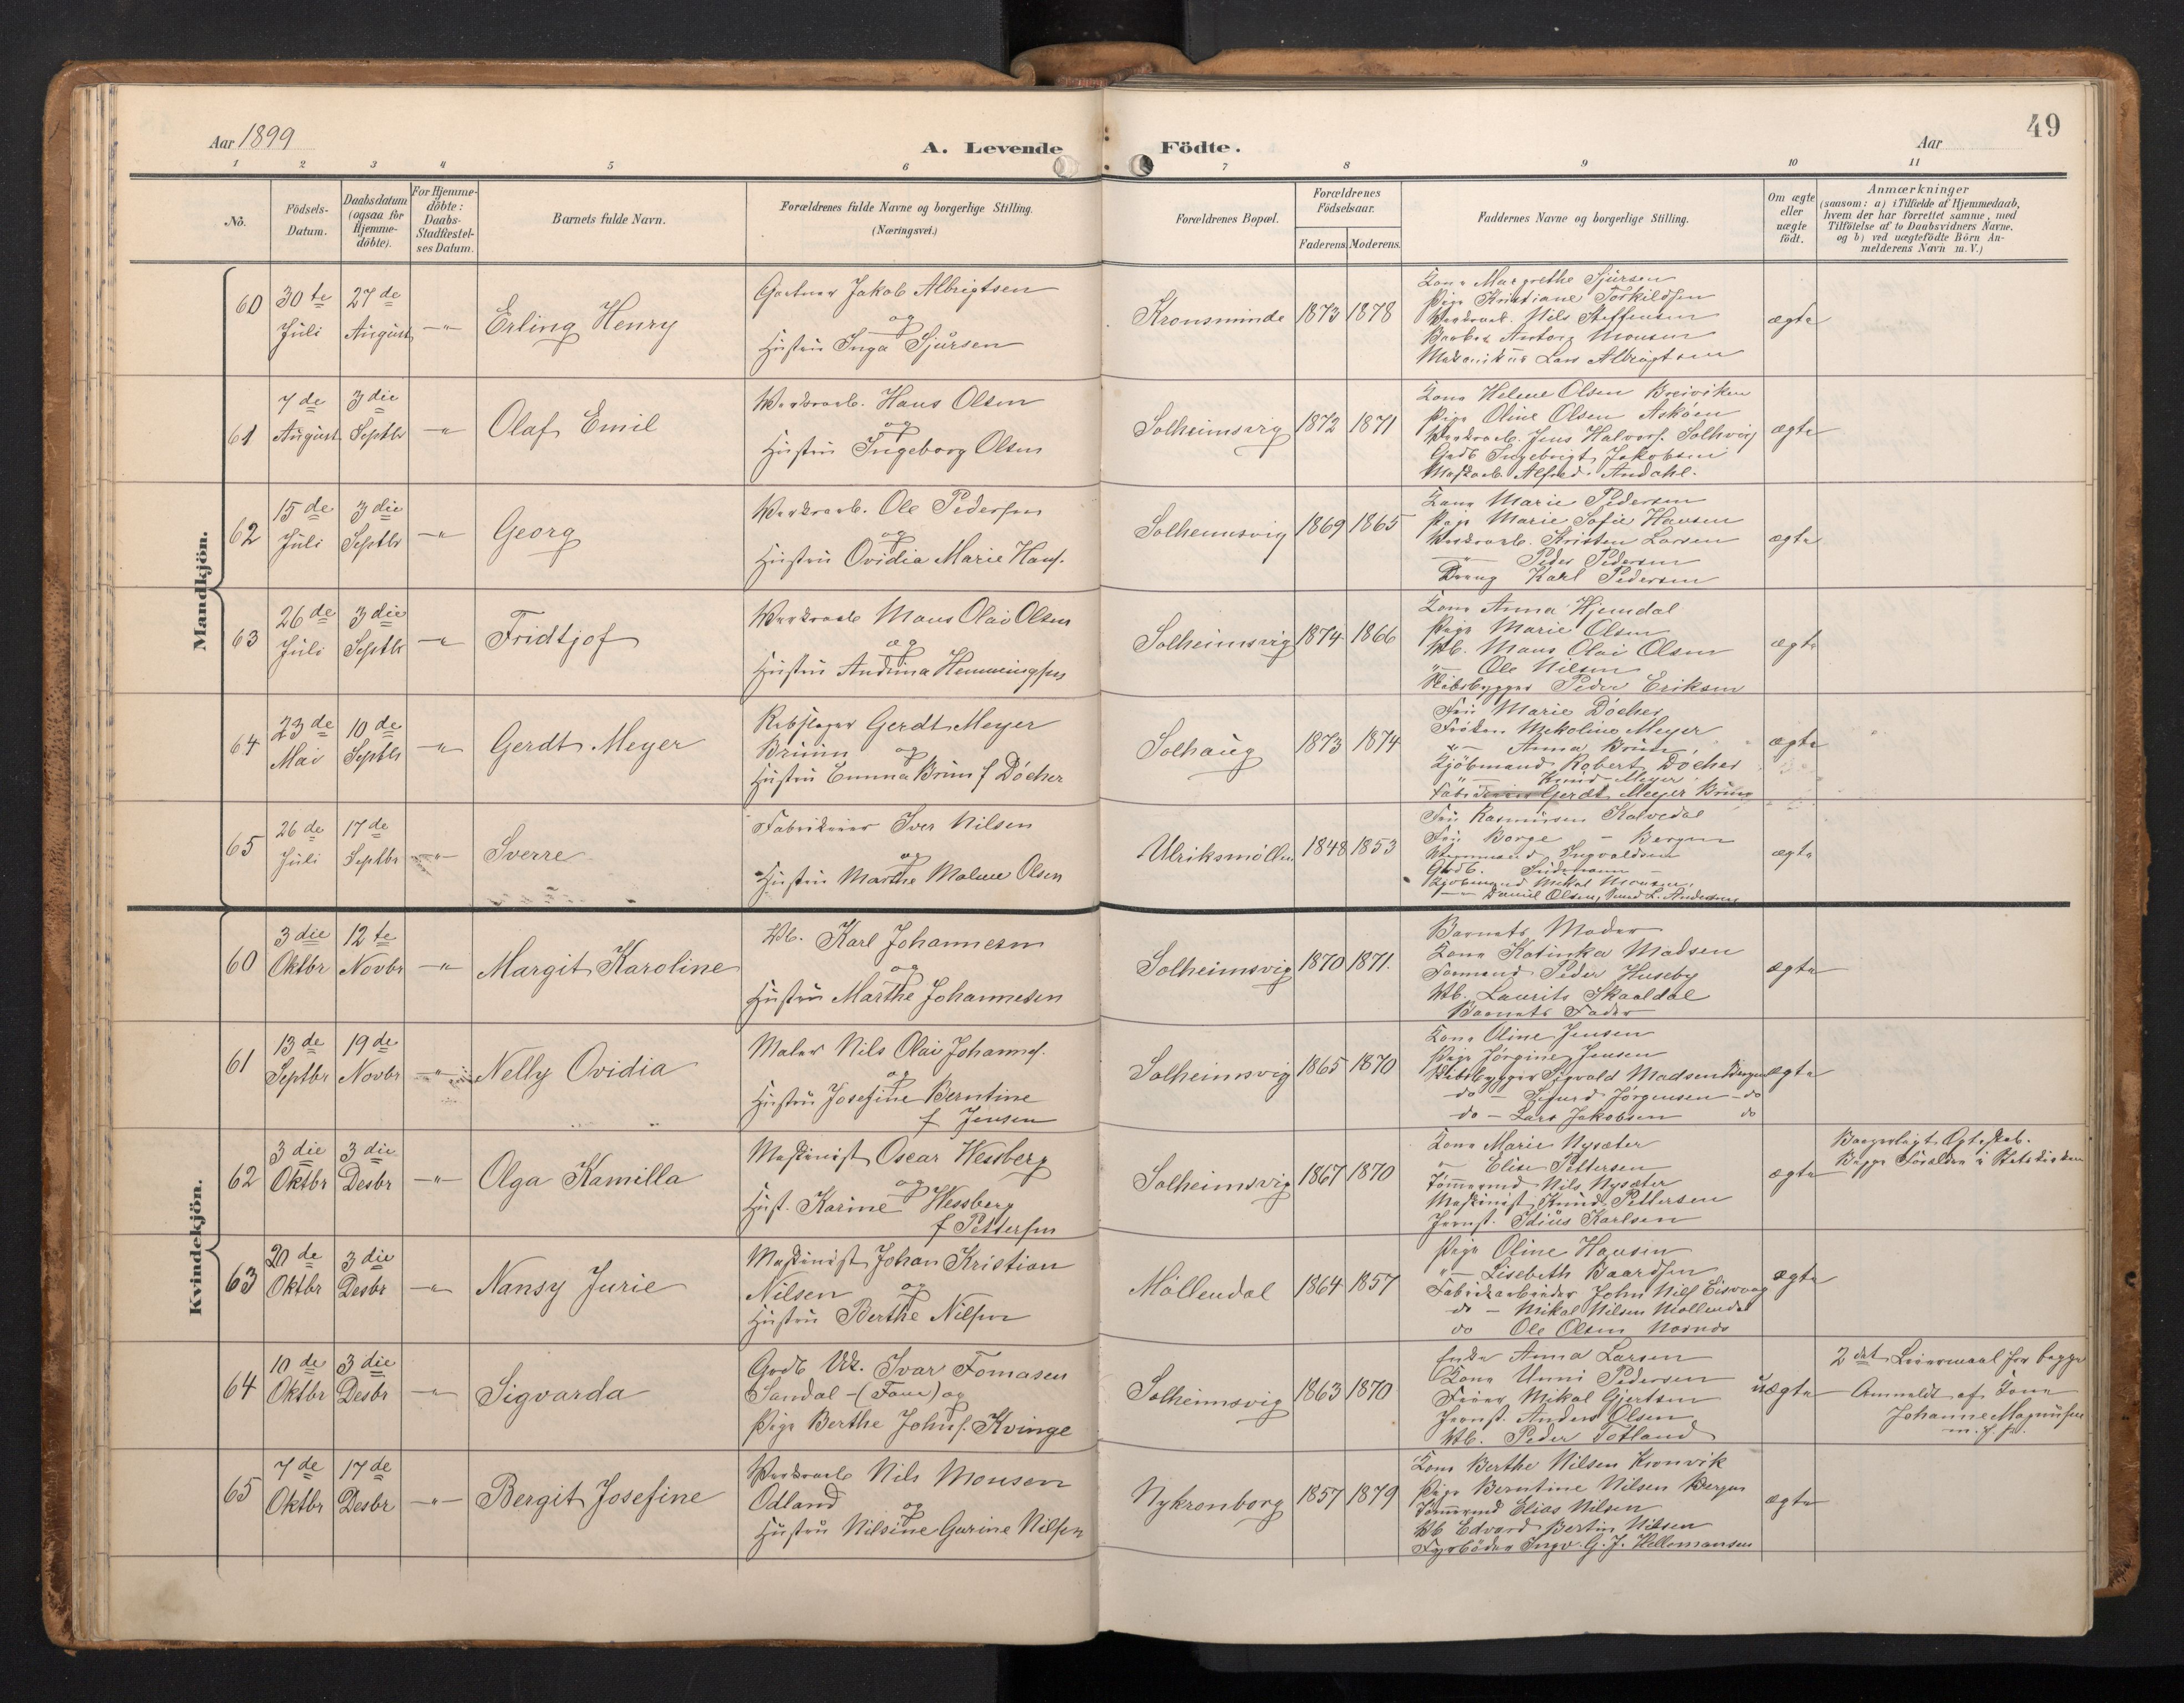 Aar 1899
A. Levende Födte.
Aar
49
1 2 3 4 5 6 7 8 9 10 11
No.
Födsels-
Datum.
Daabsdatum
(ogsaa for
Hjemme-
döbte).
For Hjemme-
döbte:
Daabs-
Stadfæstel-
ses Datum.
Barnets fulde Navn.
Forældrenes fulde Navne og borgerlige Stilling.
(Næringsvei.)
Forældrenes Bopæl.
Forældrenes
Födselsaar.
Faderens. Moderens.
Faddernes Navne og borgerlige Stilling.
Om ægte
eller
uægte
födt.
Anmærkninger
(saasom: a) i Tilfælde af Hjemmedaab,
hvem der har forrettet samme, med
Tilföielse af to Daabsvidners Navne.
og b) ved uægtefödte Börn An-
melderens Navn m. V.)
Mandkjön.
60
30te
Juli
27de
August
Erling Henry
Gartner Jakob Albrigtsen
og
Hustru Inga Sjursen
Kronsminde
1873 1878
Kona Margrethe Sjursen
Pige Kristiane Torkildsen
Værksarb. Nils Steffensen
Barber Anton Monsen
Mekanikus Lars Albrigtsen
ægte
61
7de
August
3die
Septbr
Olaf Emil
Værksarb. Hans Olsen
og
Hustru Ingeborg Olsen
Solheimsvig
1872 1871
Kona Helene Olsen Breiviken
Pige Oline Olsen Askøen
Værksarb. Jens Halvors. Solhvig
Gadb Ingebrigt Jakobsen
Maskarb Alfred Andahl.
ægte
62
15de
Juli
3die
Septbr
Georg
Værksarb. Ole Pedersen
og
Hustru Ovidia Marie Hans.
Solheimsvig
1869 1865
Kona Marie Pedersen
Pige Marie Sofie Hansen
Værksarb. Kristen Larsen
Peder Pedersen
Dreng Karl Pedersen
ægte
63
26de
Juli
3die
Septbr
Fridtjof
Værksarb Mons Olai Olsen
og
Hustru Andrina Hemmingsen
Solheimsvig
1874 1866
Kona Anna Hjemdal
Pige Marie Olsen
Vb. Mons Olai Olsen
Ole Nilsen
Skibsbygger Peder Eriksen
ægte
64
23de
Mai
10de
Septbr
Gerdt Meyer
Rebslager Gerdt Meyer
Bruun og
Hustru Emma Brun f Döcher
Solhaug
1873 1874
Fru Marie Döcher
Fröken Mekoline Meyer
Anna Brun
Kjöbmand Robert Döcher
Knud Meyer
Gerdt Meyer Brun
ægte
65
26de
Juli
17de
Septbr
Sverre
Fabrikeier Iver Nilsen
og
Hustru Marthe Malene Olsen
Ulriksmöllen
1848 1853
Fru Rasmussen Kalvedal
Fru Borge - Bergen
Ingvaldsen
Kjöbmand Mikal Monsen
Daniel Olsen,
ægte
Kvindekjön.
60
3die
Oktbr
12te
Novbr
Margit Karoline
Vb. Karl Johannesen
og
Hustru Marthe Johannesen
Solheimsvig
1870 1871.
Barnets Moder
Kona Katinka Madsen
Formand Peder Huseby
Vb. Laurits Skaaldal
Barnets Fader
ægte
61
13de
Septbr
19de
Novbr
Nelly Ovidia
Maler Nils Olai Johannes.
og
Hustru Josefine Berntine
f Jensen
Solheimsvig
1865 1870
Kona Oline Jensen
Pige Jörgine Jensen
Skibsbygger Sigvald Madsen Bergen
do - Sigurd Jörgensen - do
do - Lars Jakobsen do
ægte
62
3die
Oktbr
3die
Desbr
Olga Kamilla
Maskinist Oscar Wessberg
og
Hust. Karine Wessberg
f Pettersen
Solheimsvig
1867 1870
Kona Marie Nysæter
Elise Pettersen
Tömmermd Nils Nysæter
Maskinist Knud Pettersen
Jernst. Idius Karlsen
ægte
Borgerligt Ægteskab.
Begge Forældre i Statskirken
63
20de
Oktbr
3die
Desbr
Nansy Jurie
Maskinist Johan Kristian
Nilsen og
Hustru Berthe Nilsen
Möllendal
1864 1857
Pige Oline Hansen
Lisebeth Baardsen
Fabrikarbeider John Nils Eisvaag
do - Mikal Nilsen Möllendal
do Ole Olsen
ægte
64
10de
Oktbr
3die
Desbr
Sigvarda
Ivar Tomasen
Sandal - (Fane) og
Pige Berthe Johns. Kvinge
Solheimsvig
1863 1870
Enke Anna Larsen
Kona Unni Pedersen
Mikal Gjertsen
Jernst. Anders Olsen
Vb. Peder Totland
uægte
2det Leiermaal for begge
Anmeldt af Kone
Johanne Magnusen
65
7de
Oktbr
17de
Desbr
Bergit Josefine
Værksarb Nils Monsen
Odland og
Hustru Nilsine Garine Nilsen
Nykronborg
1857 1879
Kona Berthe Nilsen Kronvik
Pige Berntine Nilsen Bergen
Tömmermd Elias Nilsen
Vb Edvard Bertin Nilsen
Fyrböder Ingv. G. J. Hellemansen
ægte